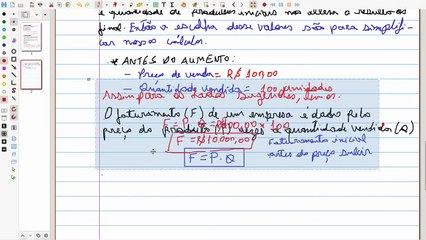 e quantidade de produtos iniciais não altera o resultado
final. Então a escolha desses valores são para simplifi
car nossos cálculos.
* ANTES DO AUMENTO:
- Preço de venda = R$ 100,00
- Quantidade vendida = 100 unidades
Assim para os dados sugeridos, temos.
O faturamento (F) de uma empresa é dado pelo
F = P . Q = R$ 100,00 × 100
preço do produto (P) vezes a quantidade vendida (Q)
F = R$ 10.000,00
Faturamento inicial
antes do preço subir
F = P . Q